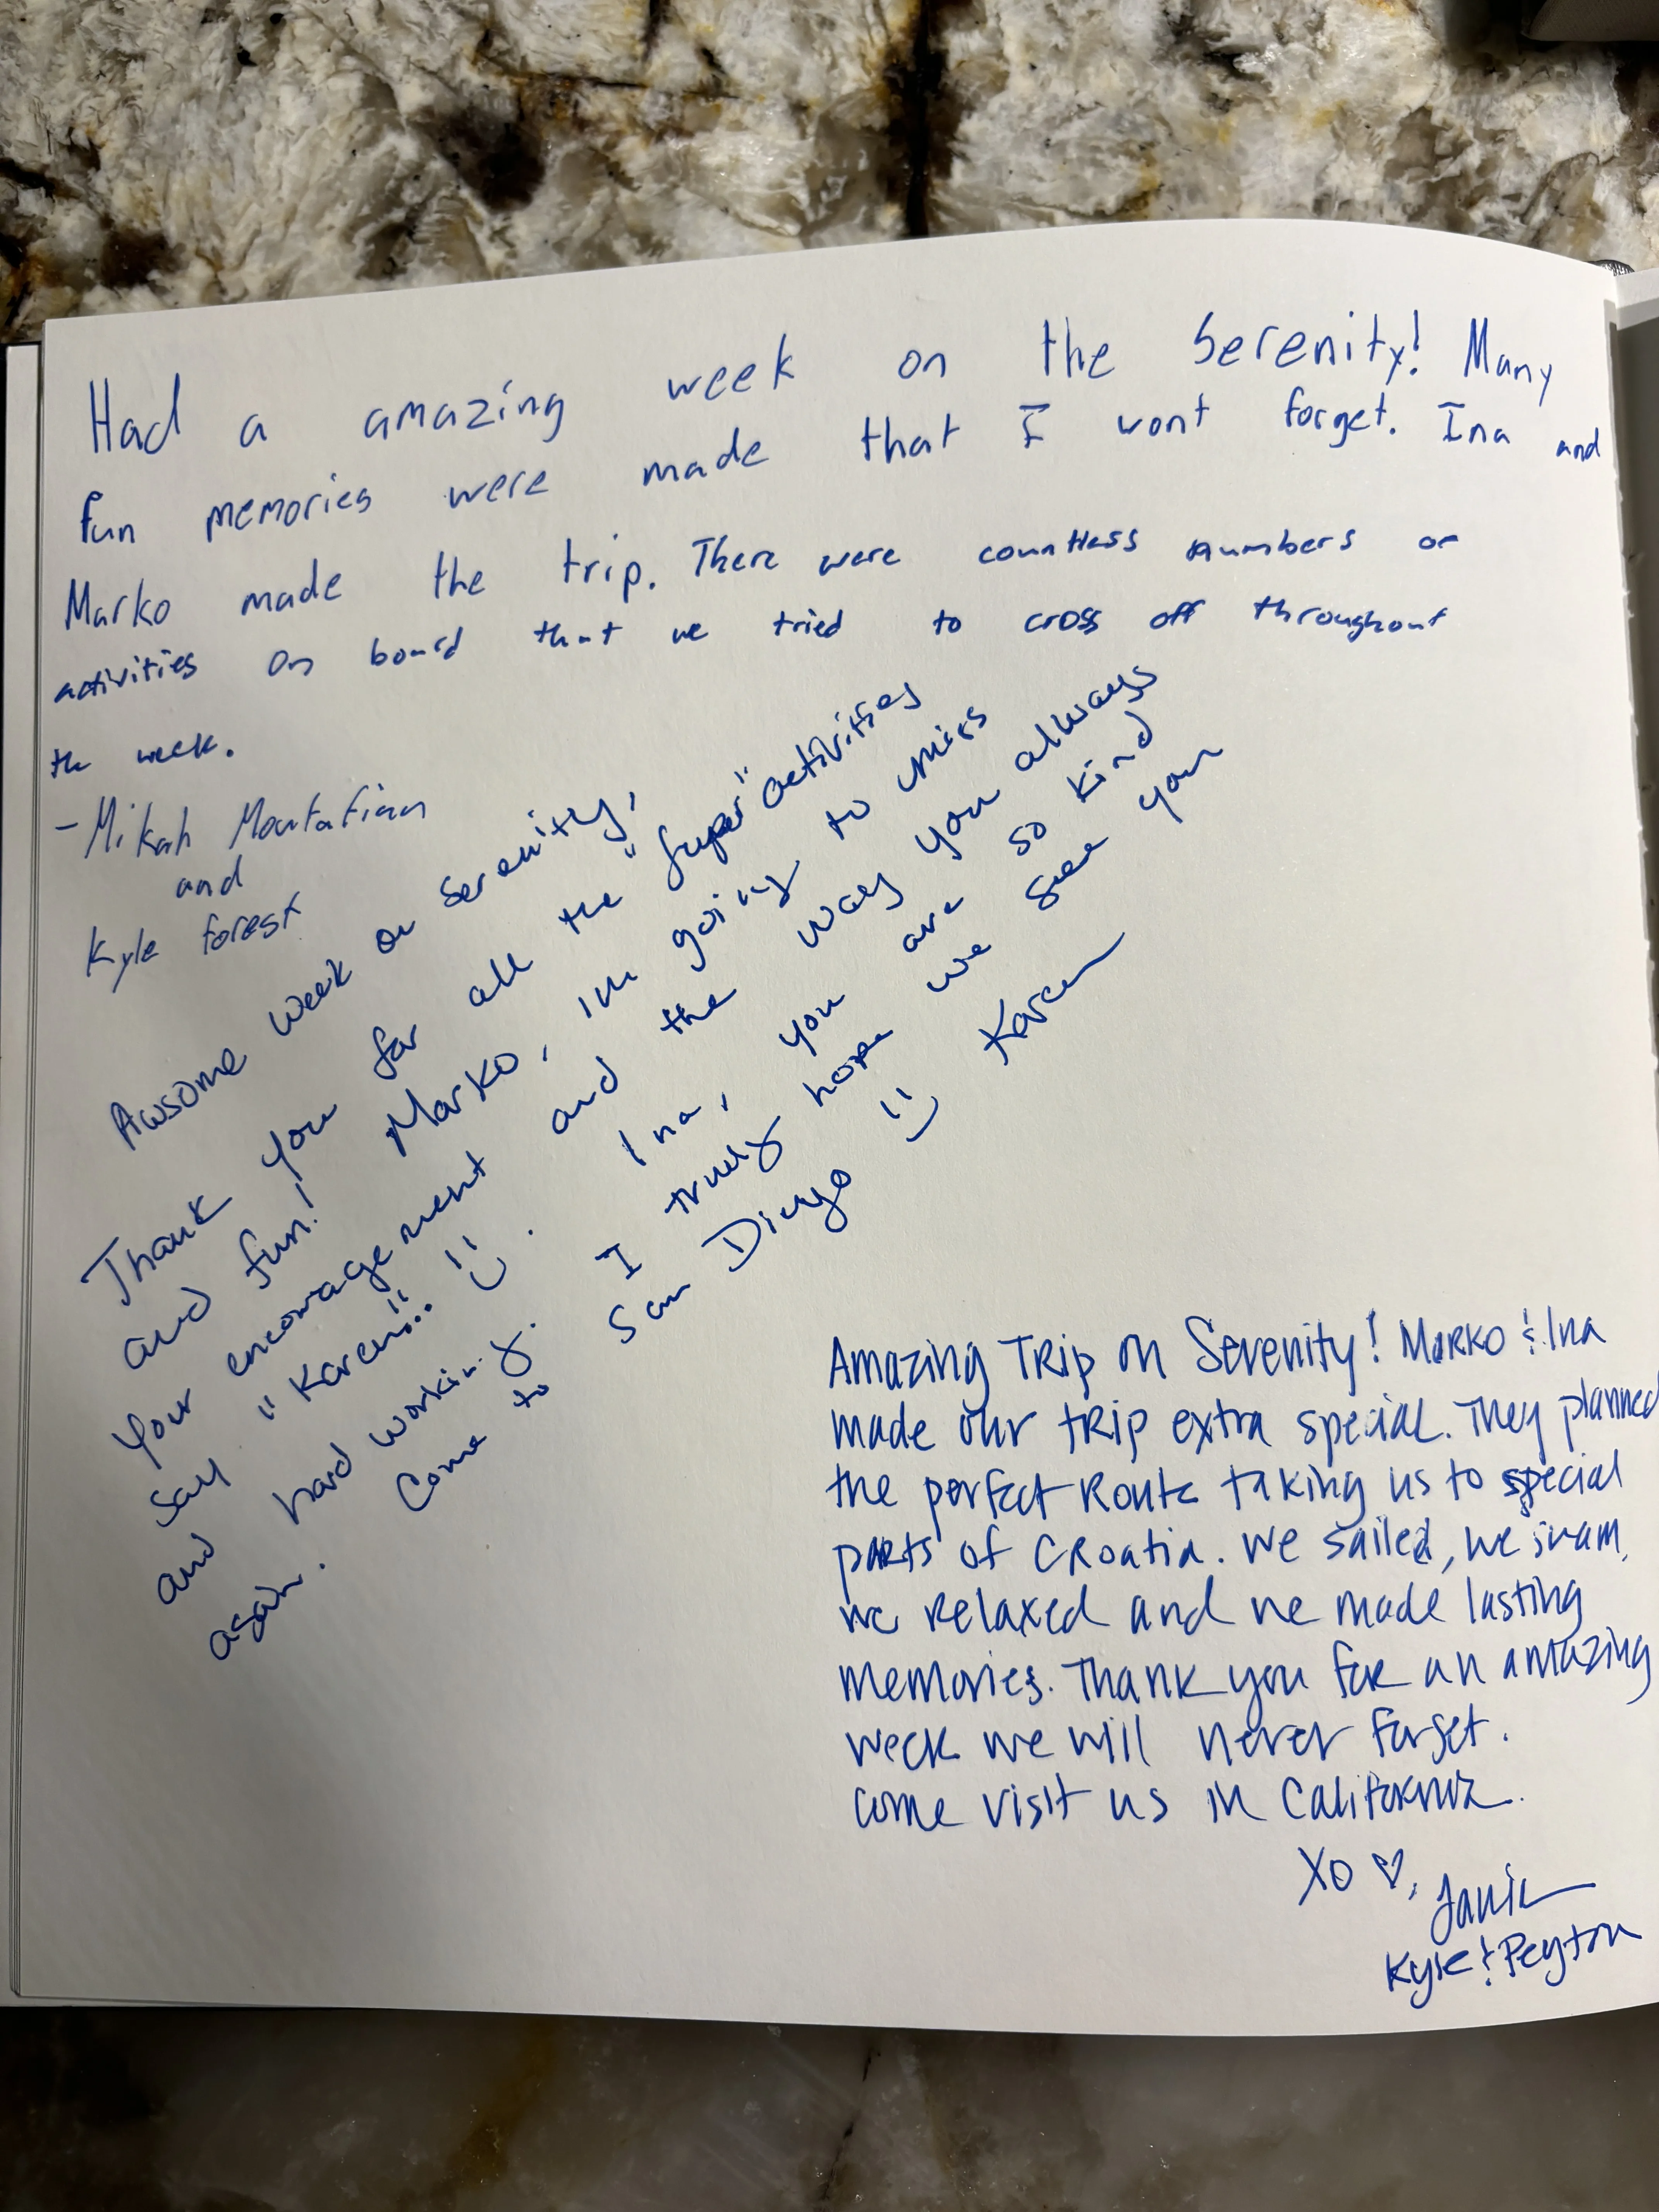 Had a amazing week on the Serenity! Many
fun memories were made that I wont forget. Ina and
Marko made the trip. There were countless numbers of
activities on board that we tried to cross off throughout
the week.
- Mikah
and
Kyle Forest
Awsome week on Serenity,
Thank you for all the "super" activities
and fun! Marko, im going to miss
your encouragement and the way you always
say "Karen!!" :) . Ina, you are so kind
and hard working. I truly hope we see you
again. Come to San Diego :) Karen
Amazing Trip on Serenity! Marko & Ina
made our trip extra special. They planned
the perfect Route taking us to special
parts of Croatia. We sailed, we swam,
we relaxed and we made lasting
memories. Thank you for an amazing
week we will never forget.
Come visit us in California.
XO ♡,
Kyle & Peyton